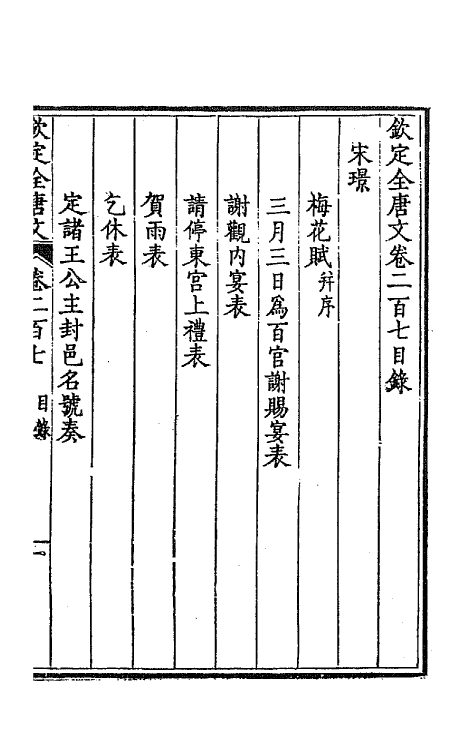 欽定全唐文卷二百七目錄
宋璟
梅花賦并序
三月三日爲百官謝賜宴表
謝觀內宴表
請停東宮上禮表
賀雨表
乞休表
定諸王公主封邑名號奏
欽定全唐文 卷二百七 目錄 一